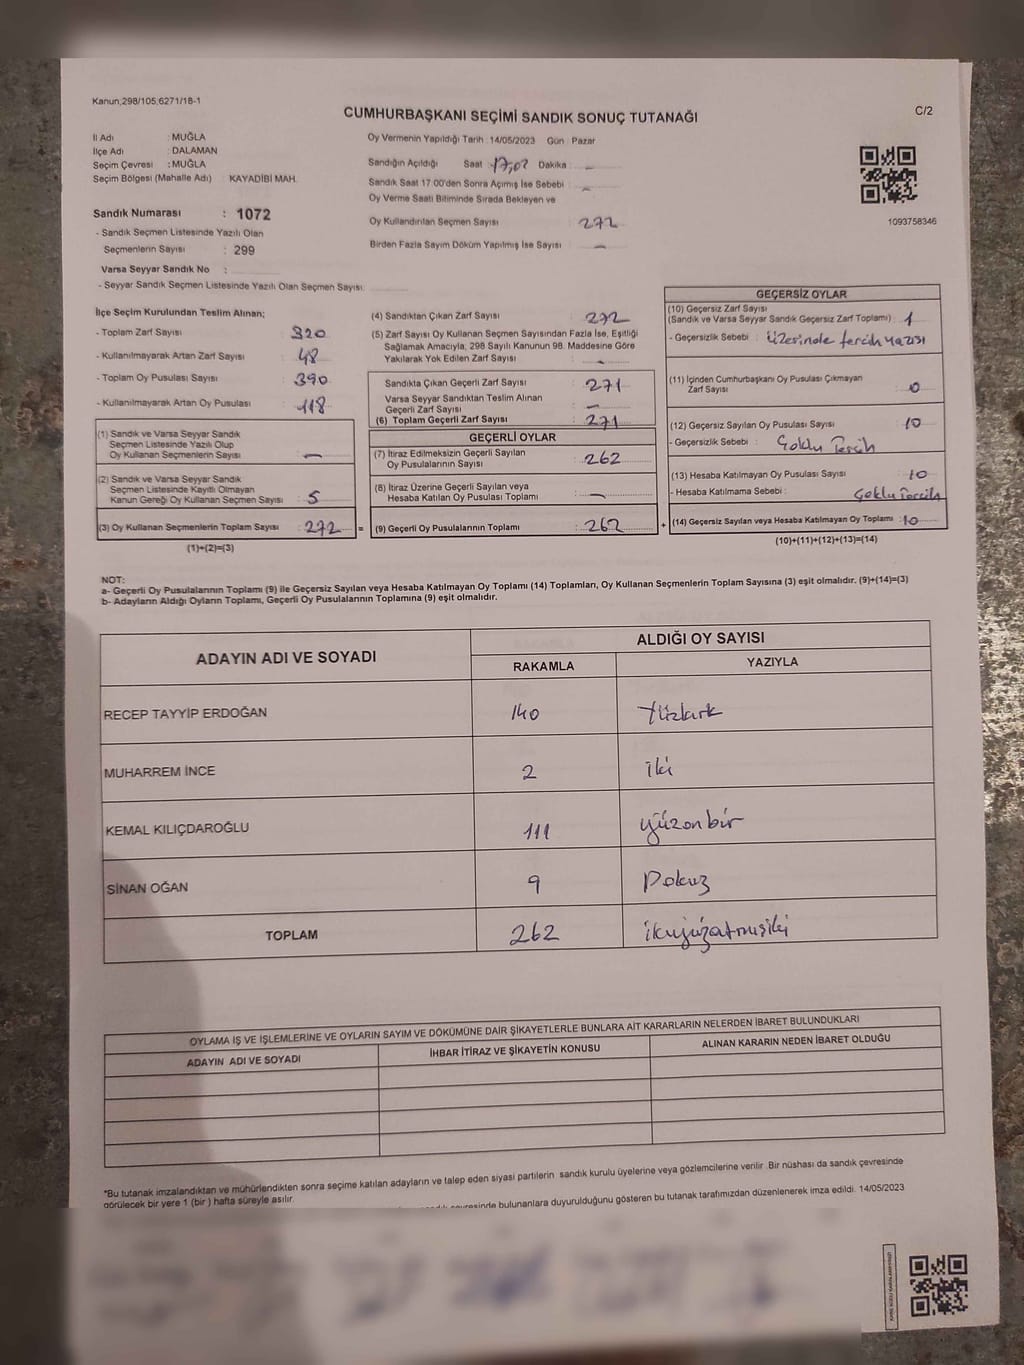 Kanun;298/105,6271/18-1
C/2
CUMHURBAŞKANI SEÇİMİ SANDIK SONUÇ TUTANAĞI
İl Adı : MUĞLA
İlçe Adı : DALAMAN
Seçim Çevresi : MUĞLA
Seçim Bölgesi (Mahalle Adı) : KAYADİBİ MAH.
Oy Vermenin Yapıldığı Tarih :14/05/2023 Gün : Pazar
Sandığın Açıldığı Saat 17,02 Dakika : –
Sandık Saat 17:00'den Sonra Açımış İse Sebebi : –
Oy Verme Saati Bitiminde Sırada Bekleyen ve
Oy Kullandırılan Seçmen Sayısı : 272
Birden Fazla Sayım Döküm Yapılmış İse Sayısı : –
1093758346
Sandık Numarası : 1072
- Sandık Seçmen Listesinde Yazılı Olan
Seçmenlerin Sayısı : 299
Varsa Seyyar Sandık No :
- Seyyar Sandık Seçmen Listesinde Yazılı Olan Seçmen Sayısı:
İlçe Seçim Kurulundan Teslim Alınan;
- Toplam Zarf Sayısı : 320
- Kullanılmayarak Artan Zarf Sayısı : 48
- Toplam Oy Pusulası Sayısı : 390
- Kullanılmayarak Artan Oy Pusulası : 118
(1) Sandık ve Varsa Seyyar Sandık
Seçmen Listesinde Yazılı Olup
Oy Kullanan Seçmenlerin Sayısı : –
(2) Sandık ve Varsa Seyyar Sandık
Seçmen Listesinde Kayıtlı Olmayan
Kanun Gereği Oy Kullanan Seçmen Sayısı : 5
(3) Oy Kullanan Seçmenlerin Toplam Sayısı : 272 =
(1)+(2)=(3)
(4) Sandıktan Çıkan Zarf Sayısı : 272
(5) Zarf Sayısı Oy Kullanan Seçmen Sayısından Fazla İse, Eşitliği
Sağlamak Amacıyla, 298 Sayılı Kanunun 98. Maddesine Göre
Yakılarak Yok Edilen Zarf Sayısı : –
Sandıkta Çıkan Geçerli Zarf Sayısı : 271
Varsa Seyyar Sandıktan Teslim Alınan
Geçerli Zarf Sayısı : –
(6) Toplam Geçerli Zarf Sayısı : 271
GEÇERLİ OYLAR
(7) İtiraz Edilmeksizin Geçerli Sayılan
Oy Pusulalarının Sayısı : 262
(8) İtiraz Üzerine Geçerli Sayılan veya
Hesaba Katılan Oy Pusulası Toplamı : –
(9) Geçerli Oy Pusulalarının Toplamı : 262 +
GEÇERSİZ OYLAR
(10) Geçersiz Zarf Sayısı
(Sandık ve Varsa Seyyar Sandık Geçersiz Zarf Toplamı) : 1
- Geçersizlik Sebebi : Üzerinde tercih yazısı
(11) İçinden Cumhurbaşkanı Oy Pusulası Çıkmayan
Zarf Sayısı : 0
(12) Geçersiz Sayılan Oy Pusulası Sayısı : 10
- Geçersizlik Sebebi : Çoklu Tercih
(13) Hesaba Katılmayan Oy Pusulası Sayısı : 10
- Hesaba Katılmama Sebebi : Çoklu Tercih
(14) Geçersiz Sayılan veya Hesaba Katılmayan Oy Toplamı : 10
(10)+(11)+(12)+(13)=(14)
NOT:
a- Geçerli Oy Pusulasının Toplamı (9) ile Geçersiz Sayılan veya Hesaba Katılmayan Oy Toplamı (14) Toplamları, Oy Kullanan Seçmenlerin Toplam Sayısına (3) eşit olmalıdır. (9)+(14)=(3)
b- Adayların Aldığı Oyların Toplamı, Geçerli Oy Pusulalarının Toplamına (9) eşit olmalıdır.
ADAYIN ADI VE SOYADI
ALDIĞI OY SAYISI
RAKAMLA YAZIYLA
RECEP TAYYİP ERDOĞAN 140 Yüzkırk
MUHARREM İNCE 2 iki
KEMAL KILIÇDAROĞLU 111 yüzonbir
SİNAN OĞAN 9 Dokuz
TOPLAM 262 ikiyüzatmışiki
OYLAMA İŞ VE İŞLEMLERİNE VE OYLARIN SAYIM VE DÖKÜMÜNE DAİR ŞİKAYETLERLE BUNLARA AİT KARARLARIN NELERDEN İBARET BULUNDUKLARI
ADAYIN ADI VE SOYADI İHBAR İTİRAZ VE ŞİKAYETİN KONUSU ALINAN KARARIN NEDEN İBARET OLDUĞU
*Bu tutanak imzalandıktan ve mühürlendikten sonra seçime katılan adayların ve talep eden siyasi partilerin sandık kurulu üyelerine veya gözlemcilerine verilir. Bir nüshası da sandık çevresinde
görülecek bir yere 1 (bir ) hafta süreyle asılır.
bulunanlara duyurulduğunu gösteren bu tutanak tarafımızdan düzenlenerek imza edildi. 14/05/2023